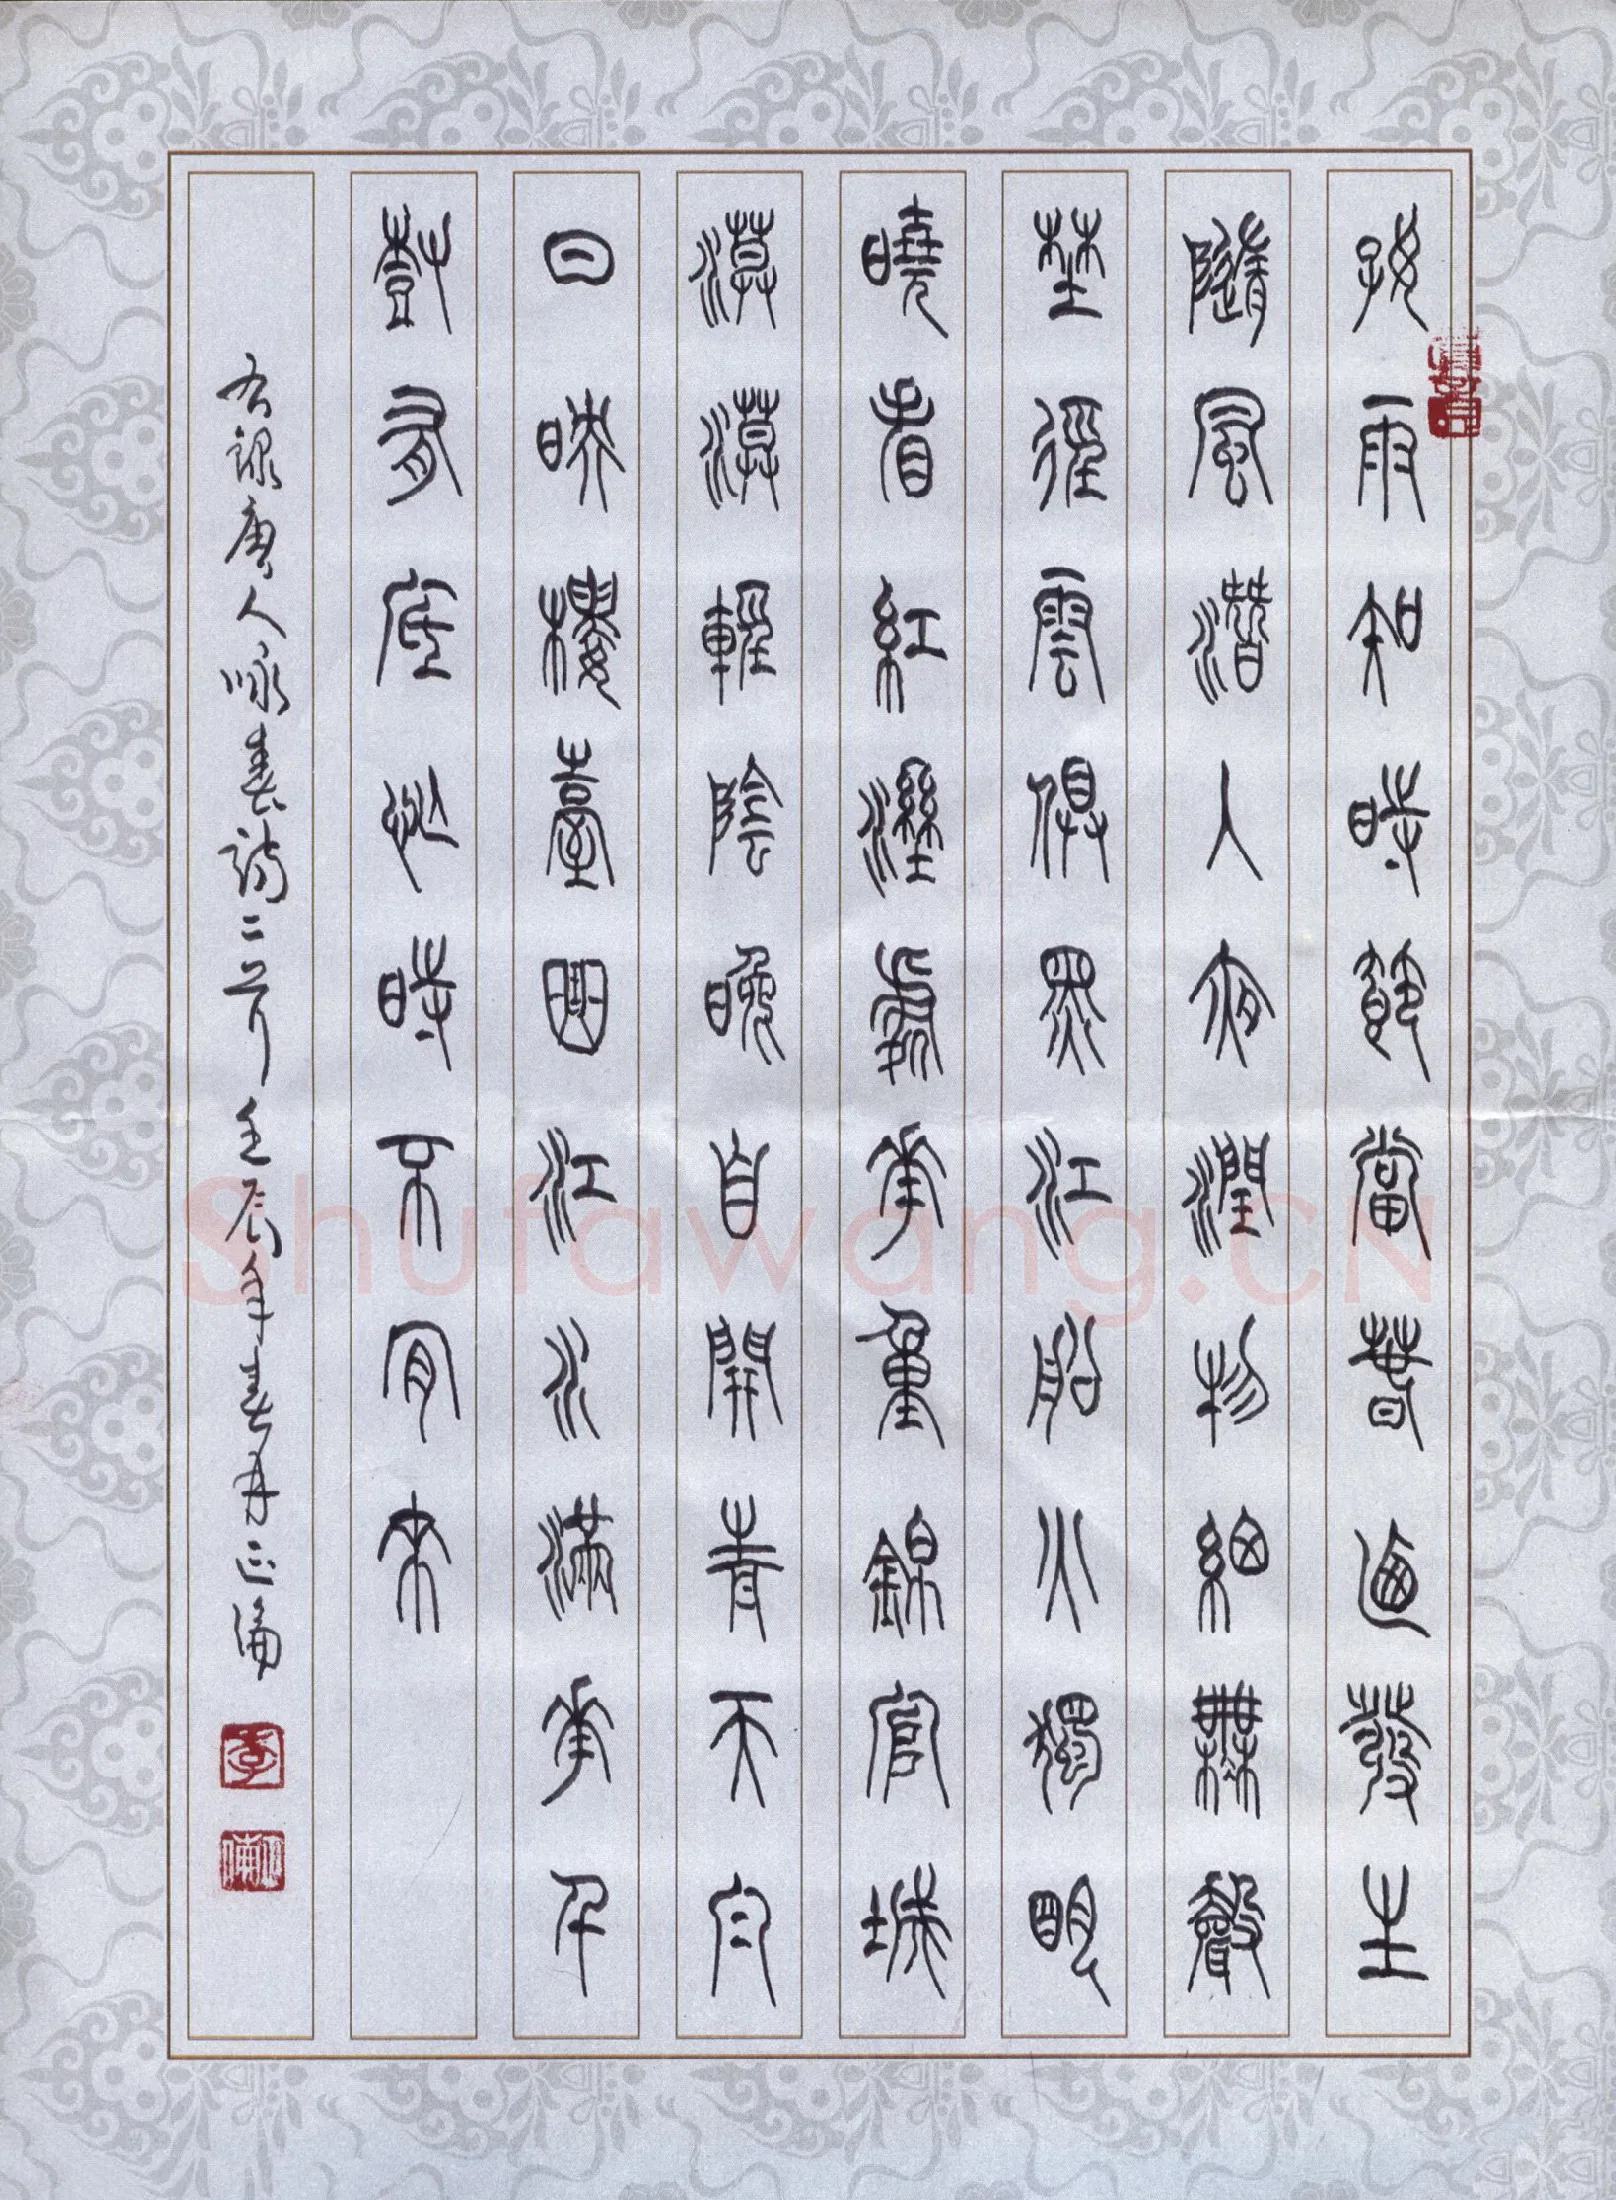 好雨知時節當春迺發生
隨風潛入夜潤物細無聲
埜徑雲俱黑江船火獨明
曉看紅濕處花重錦官城
漠漠輕陰晚自開青天白
日映樓臺曲江水滿花千
樹有底忙時不肎來
右錄唐人詠春詩二首壬辰年春月正甫
李
Shufawang.CN